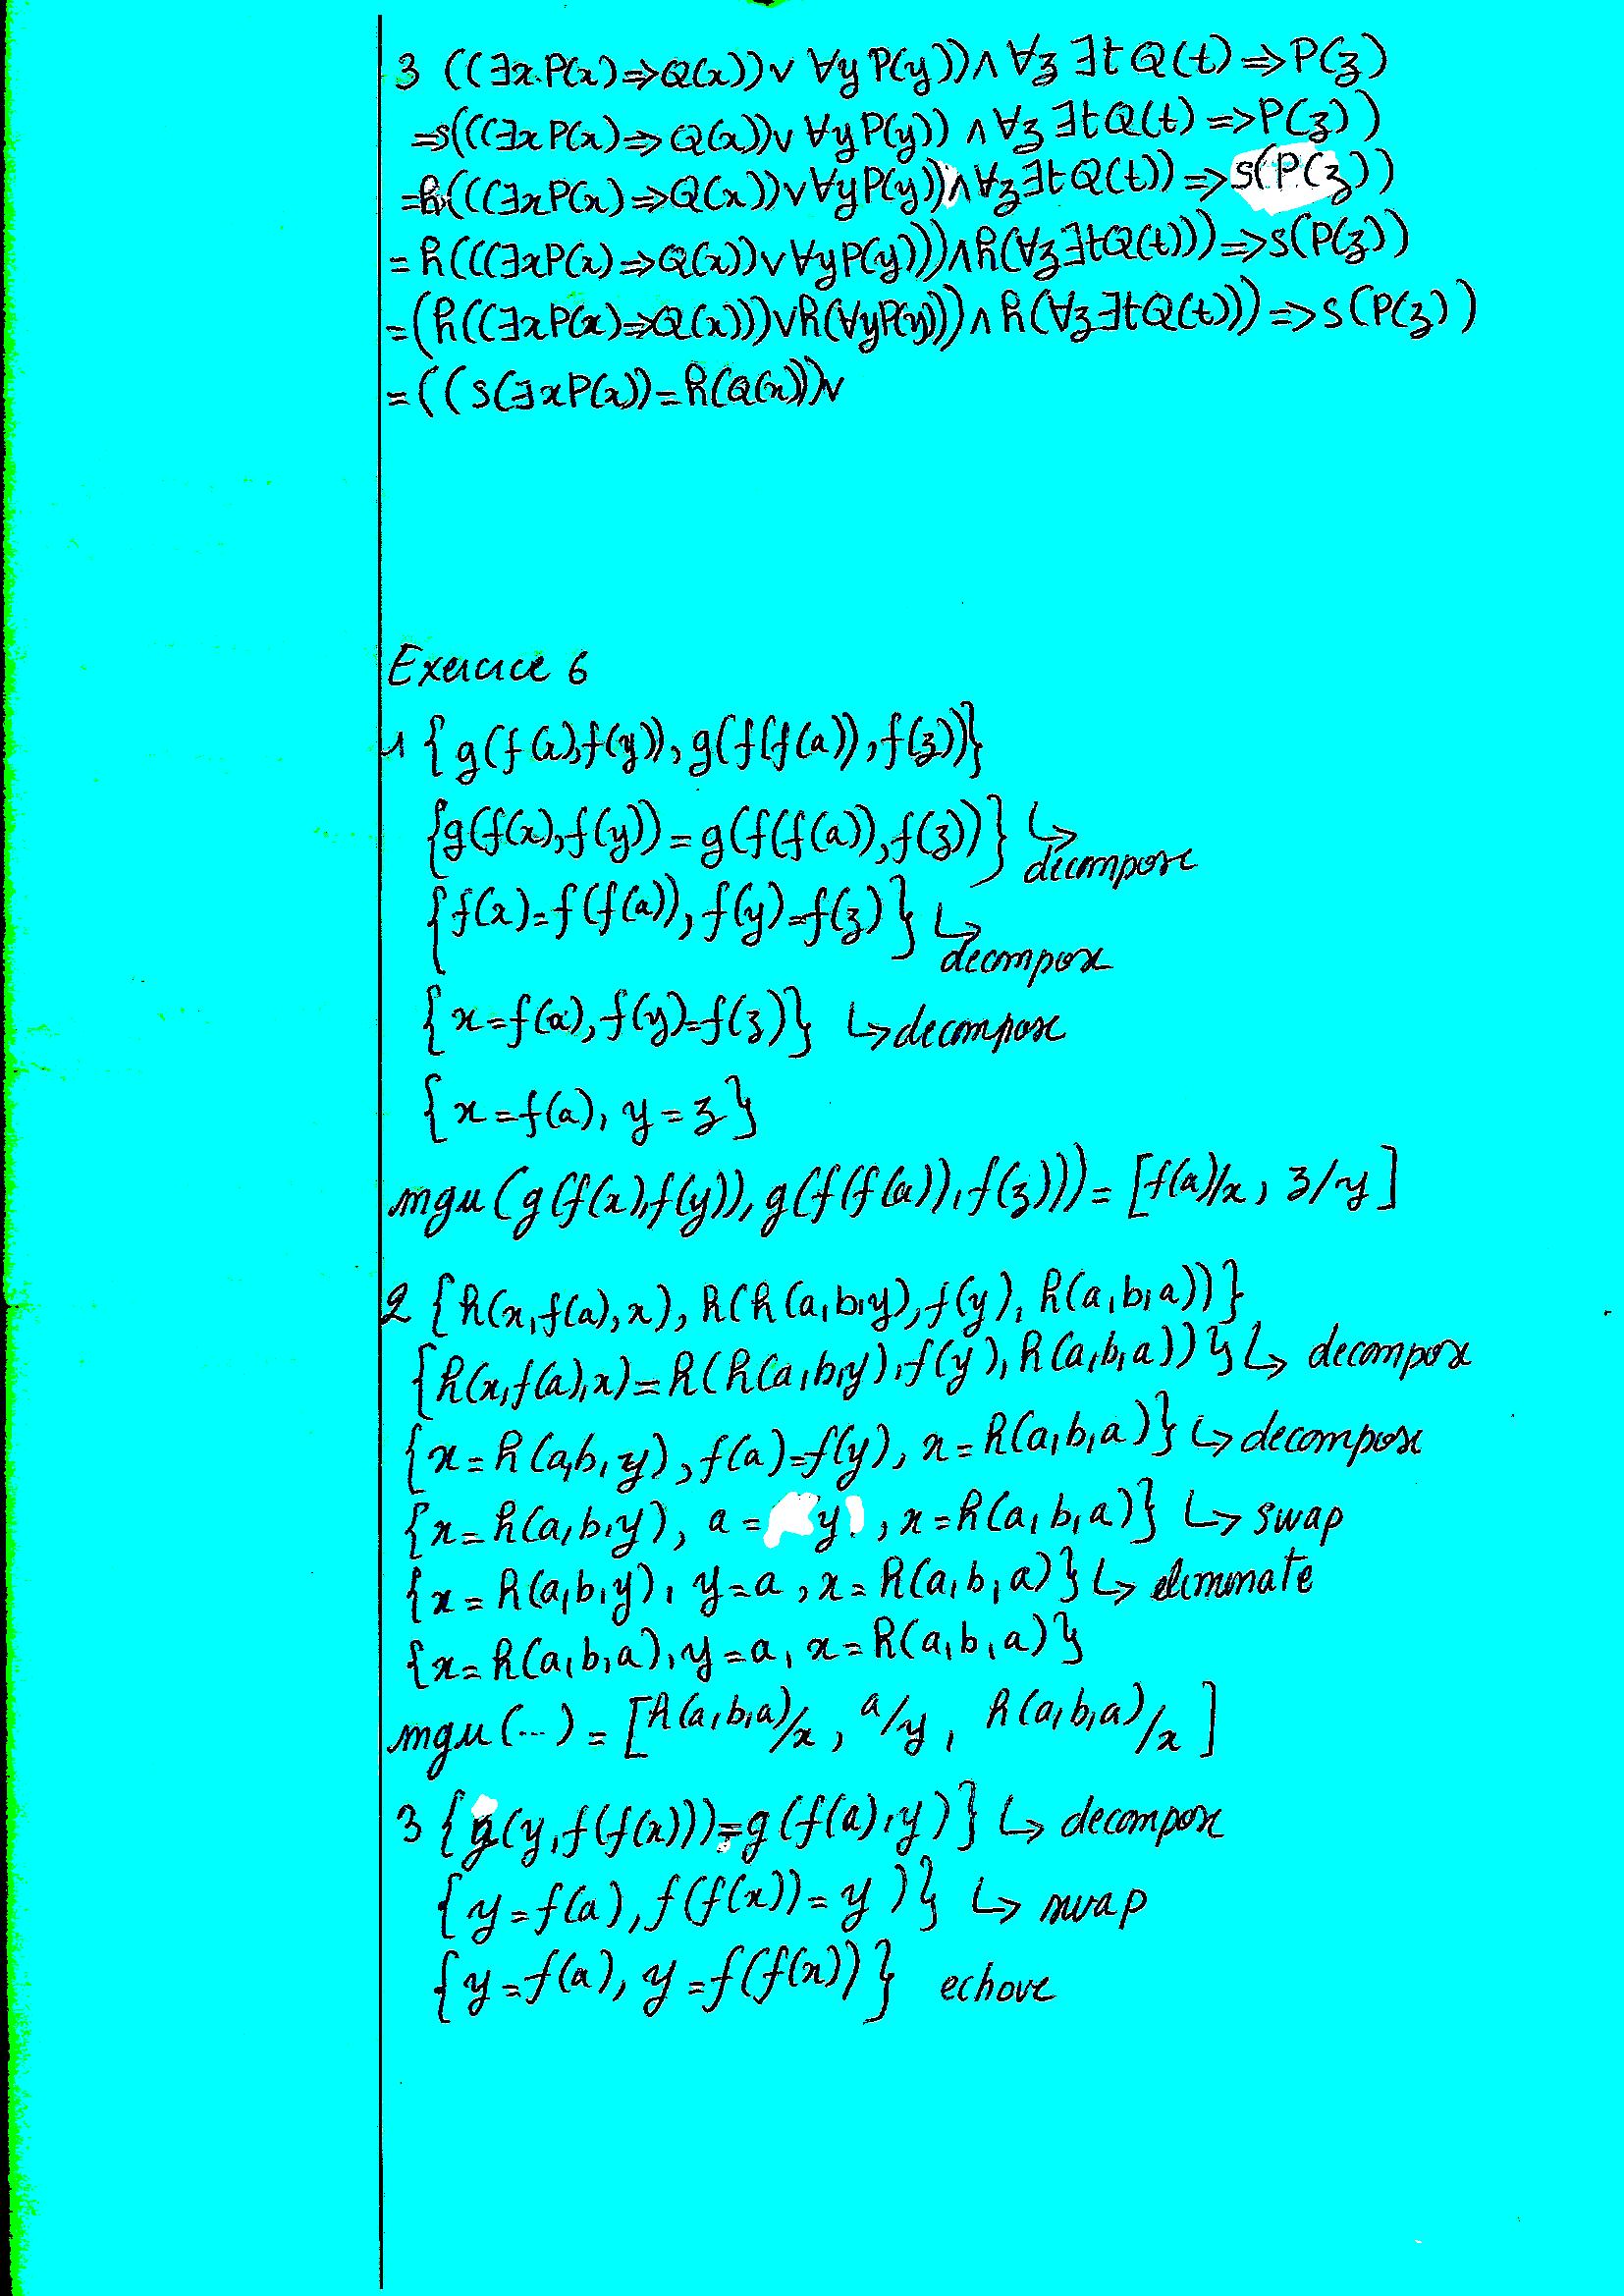 3 ((∃x.P(x)⇒Q(x))∨ ∀y P(y))∧ ∀z ∃t Q(t)⇒P(z)
=s(((∃x P(x)⇒ Q(x))∨ ∀y P(y)) ∧ ∀z ∃t Q(t) ⇒P(z))
=h(((∃x P(x)⇒Q(x))∨∀y P(y))∧ ∀z ∃t Q(t))⇒s(P(z))
= h(((∃x P(x)⇒Q(x))∨ ∀y P(y)))∧h(∀z ∃t Q(t)))⇒s(P(z))
=(h((∃x P(x)⇒Q(x)))∨h(∀y P(y)))∧ h(∀z ∃t Q(t)))⇒s(P(z))
=((s(∃x P(x))=h(Q(x)))∨
Exercice 6
1 {g(f(x),f(y)), g(f(f(a)),f(z))}
{g(f(x),f(y))=g(f(f(a)),f(z))} ↳ decompose
{f(x)=f(f(a)), f(y)=f(z)} ↳ decompose
{x=f(a), f(y)=f(z)} ↳decompose
{x=f(a), y=z}
mgu(g(f(x),f(y)), g(f(f(a)),f(z)))= [f(a)/x, z/y]
2 {h(x,f(a),x), h(h(a,b,y),f(y), h(a,b,a))}
{h(x,f(a),x)=h(h(a,b,y),f(y),h(a,b,a))} ↳ decompose
{x=h(a,b,y), f(a)=f(y), x=h(a,b,a)} ↳decompose
{x=h(a,b,y), a=y, x=h(a,b,a)} ↳ swap
{x=h(a,b,y), y=a, x=h(a,b,a)} ↳ eliminate
{x=h(a,b,a), y=a, x=h(a,b,a)}
mgu(...) = [h(a,b,a)/x, a/y, h(a,b,a)/x]
3 {g(y,f(f(x)))=g(f(a),y)} ↳ decompose
{y=f(a), f(f(x))=y)} ↳ swap
{y=f(a), y=f(f(x))} echove